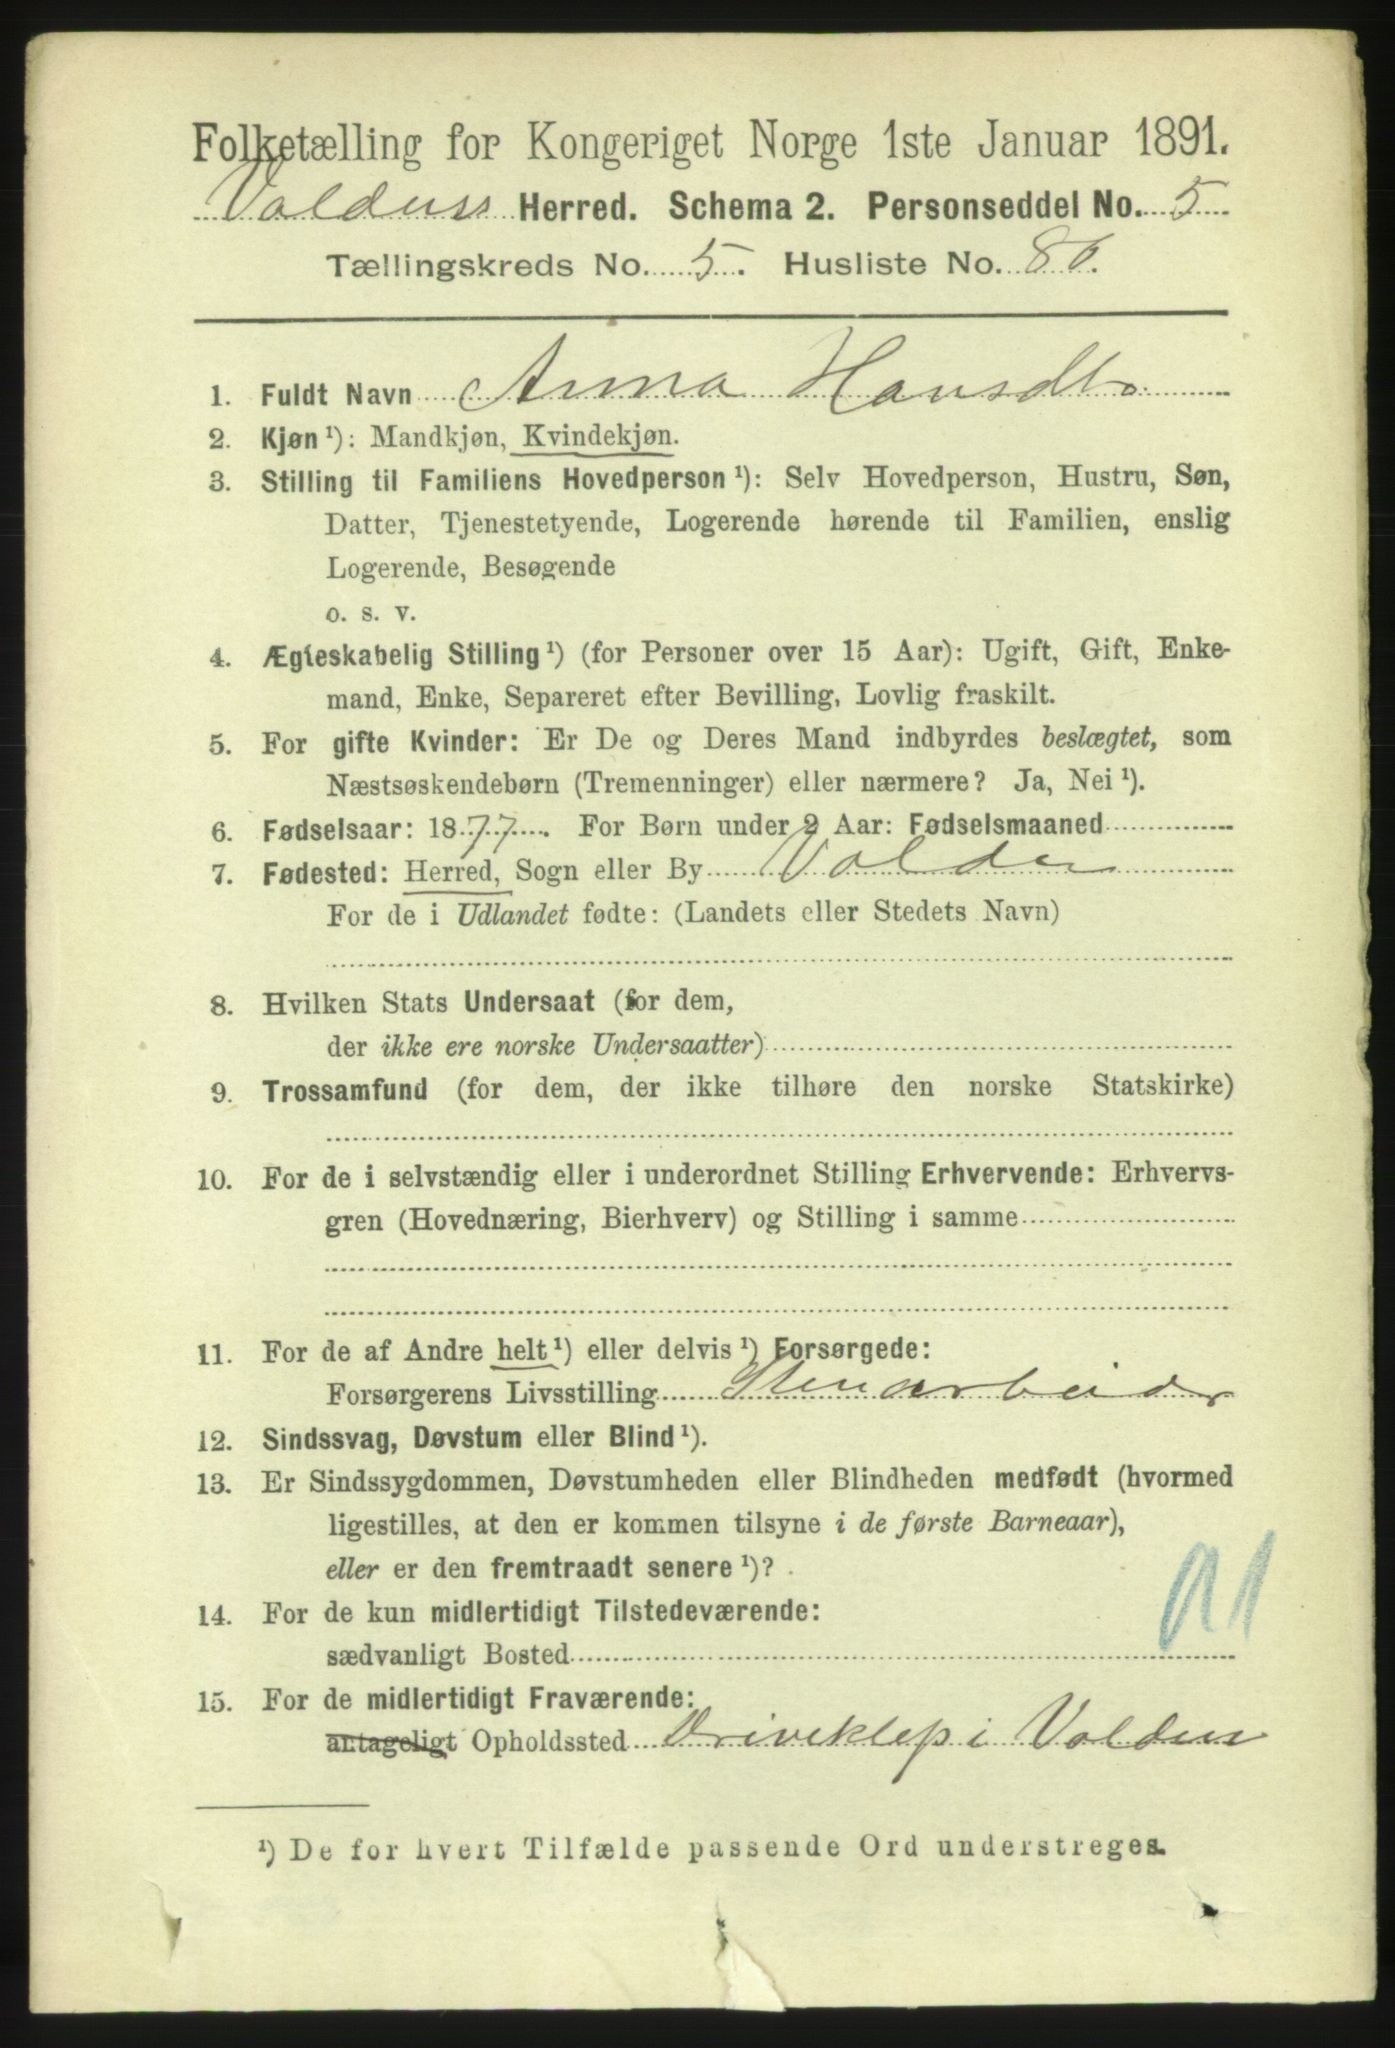 Folketælling for Kongeriget Norge 1ste Januar 1891.
Voldens Herred. Schema 2. Personseddel No. 5
Tællingskreds No. 5. Husliste No. 86.
1. Fuldt Navn Anna Hansdtr.
2. Kjøn ¹): Mandkjøn, Kvindekjøn.
3. Stilling til Familiens Hovedperson ¹): Selv Hovedperson, Hustru, Søn,
Datter, Tjenestetyende, Logerende hørende til Familien, enslig
Logerende, Besøgende
o. s. v.
4. Ægteskabelig Stilling ¹) (for Personer over 15 Aar): Ugift, Gift, Enke-
mand, Enke, Separeret efter Bevilling, Lovlig fraskilt.
5. For gifte Kvinder: Er De og Deres Mand indbyrdes beslægtet, som
Næstsøskendebørn (Tremenninger) eller nærmere? Ja, Nei ¹).
6. Fødselsaar: 1877. For Børn under 2 Aar: Fødselsmaaned
7. Fødested: Herred, Sogn eller By Volden
For de i Udlandet fødte: (Landets eller Stedets Navn)
8. Hvilken Stats Undersaat (for dem,
der ikke ere norske Undersaatter)
9. Trossamfund (for dem, der ikke tilhøre den norske Statskirke)
10. For de i selvstændig eller i underordnet Stilling Erhvervende: Erhvervs-
gren (Hovednæring, Bierhverv) og Stilling i samme
11. For de af Andre helt ¹) eller delvis ¹) Forsørgede:
Forsørgerens Livsstilling Stenarbeider
12. Sindssvag, Døvstum eller Blind ¹).
13. Er Sindssygdommen, Døvstumheden eller Blindheden medfødt (hvormed
ligestilles, at den er kommen tilsyne i de første Barneaar),
eller er den fremtraadt senere ¹)?
14. For de kun midlertidigt Tilstedeværende:
sædvanligt Bosted
15. For de midlertidigt Fraværende:
antageligt Opholdssted Driveklep i Volden
¹) De for hvert Tilfælde passende Ord understreges.